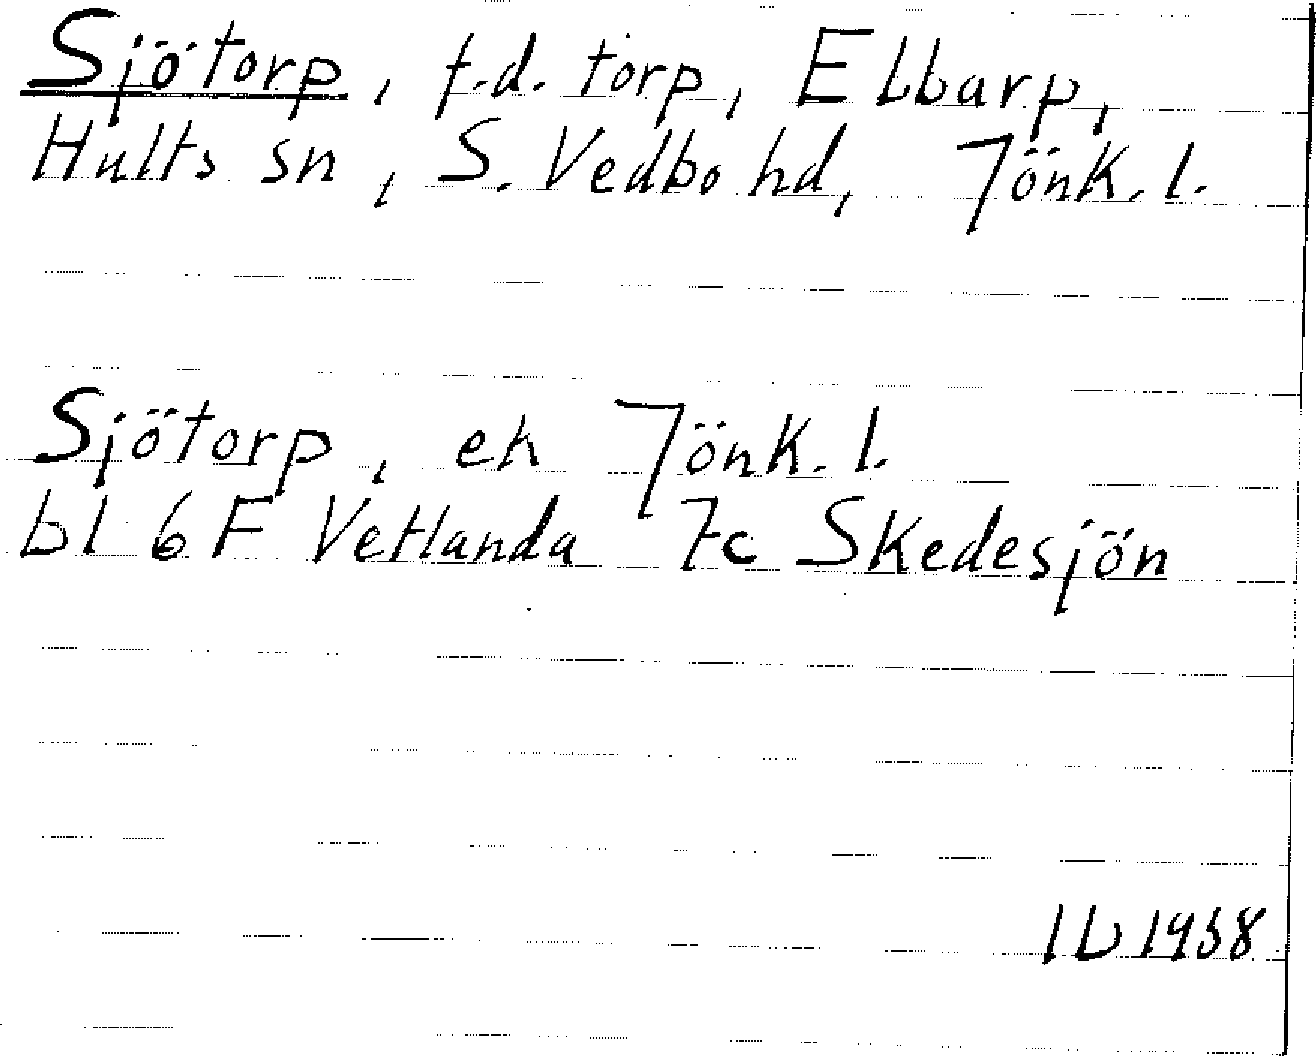 Sjötorp, f.d. torp, Elbarp,
Hults sn, S. Vedbo hd, Jönk. l.
Sjötorp, ek Jönk. l.
bl 6 F Vetlanda 7c Skedesjön